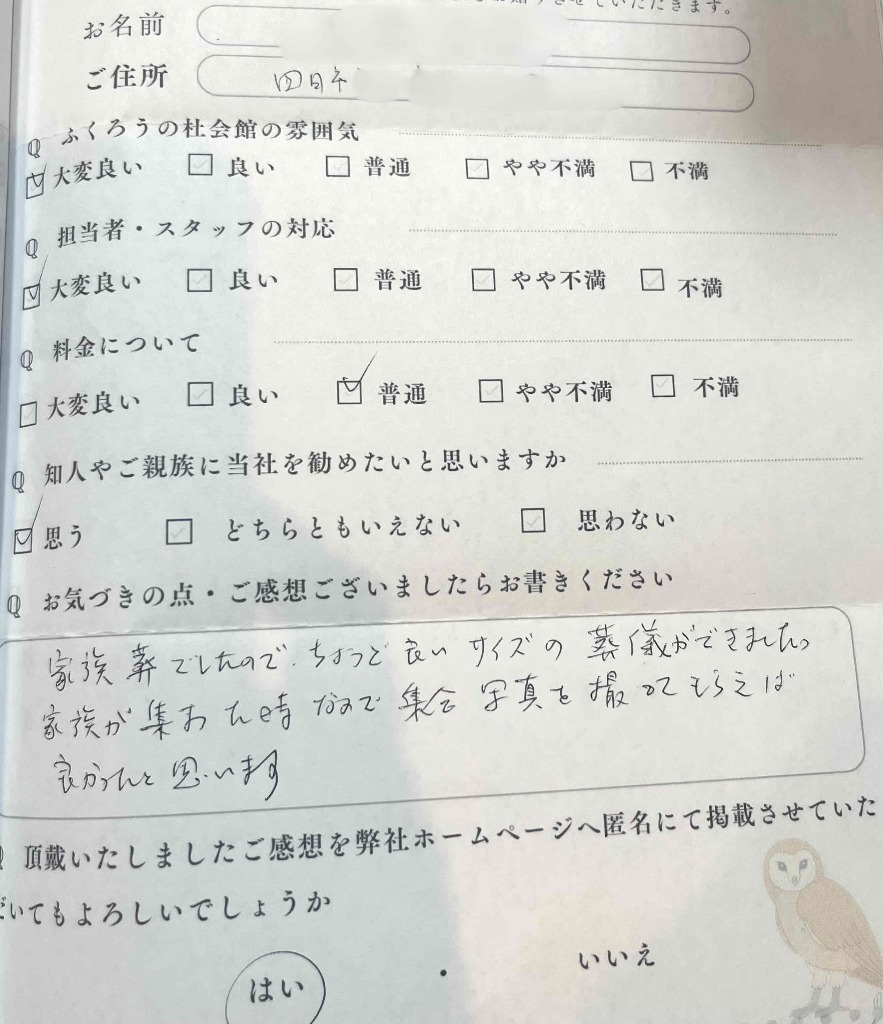 させていただきます。
お名前
ご住所 四日市
Q ふくろうの杜会館の雰囲気
大変良い 良い 普通 やや不満 不満
Q 担当者・スタッフの対応
大変良い 良い 普通 やや不満 不満
Q 料金について
大変良い 良い 普通 やや不満 不満
Q 知人やご親族に当社を勧めたいと思いますか
思う どちらともいえない 思わない
Q お気づきの点・ご感想ございましたらお書きください
家族葬でしたので、ちょうど良いサイズの葬儀ができました。
家族が集まった時なので集合写真を撮ってもらえば
良かったと思います
Q 頂戴いたしましたご感想を弊社ホームページへ匿名にて掲載させていた
だいてもよろしいでしょうか
はい ・ いいえ